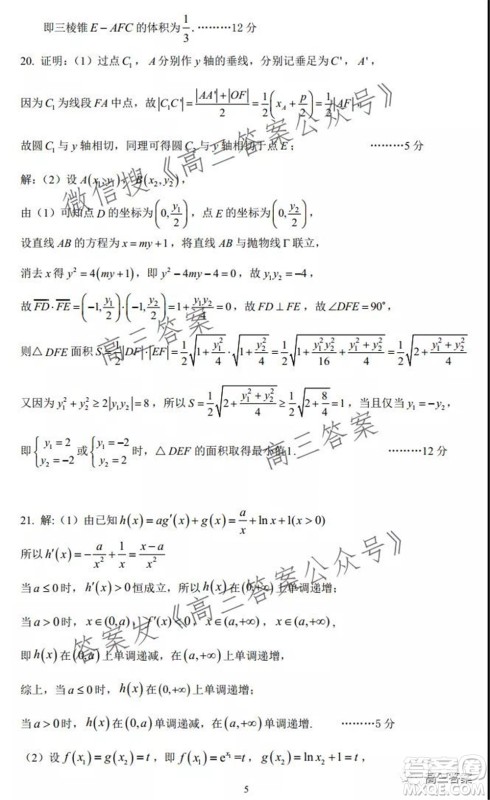 即三棱锥 E－AFC 的体积为 1/3. ………12 分
20. 证明：（1）过点 C₁，A 分别作 y 轴的垂线，分别记垂足为 C'，A'，
因为 C₁ 为线段 FA 中点，故 |C₁C'| = (|AA'|+|OF|)/2 = 1/2(x_A + p/2) = 1/2|AF|，
故圆 C₁ 与 y 轴相切，同理可得圆 C₂ 与 y 轴相切于点 E； ………5 分
解：（2）设 A(x₁, y₁)，B(x₂, y₂)，
由（1）可知点 D 的坐标为 (0, y₁/2)，点 E 的坐标为 (0, y₂/2)，
设直线 AB 的方程为 x = my + 1，将直线 AB 与抛物线 Γ 联立，
消去 x 得 y² = 4(my+1)，即 y² − 4my − 4 = 0，故 y₁y₂ = −4，
故 FD · FE = (−1, y₁/2) · (−1, y₂/2) = 1 + y₁y₂/4 = 0，故 FD ⊥ FE，故 ∠DFE = 90°，
则△ DFE 面积 S = 1/2|DF|·|EF| = 1/2 √(1 + y₁²/4) · √(1 + y₂²/4) = 1/2 √(1 + y₁²y₂²/16 + (y₁²+y₂²)/4) = 1/2 √(2 + (y₁²+y₂²)/4)
又因为 y₁² + y₂² ≥ 2|y₁y₂| = 8，所以 S = 1/2 √(2 + (y₁²+y₂²)/4) ≥ 1/2 √(2 + 8/4) = 1，当且仅当 y₁ = −y₂，
即 {y₁ = 2, y₂ = −2 或 {y₁ = −2, y₂ = 2 时，△ DEF 的面积取得最小值 1. ………12 分
21. 解:（1）由已知 h(x) = ag'(x) + g(x) = a/x + ln x + 1(x > 0)
所以 h'(x) = −a/x² + 1/x = (x−a)/x²
当 a ≤ 0 时，h'(x) > 0 恒成立，所以 h(x) 在 (0,+∞) 上单调递增；
当 a > 0 时，x∈(0,a)，h'(x) < 0，x∈(a,+∞)，h'(x) > 0，
即 h(x) 在 (0,a) 上单调递减，在 (a,+∞) 上单调递增
综上，当 a ≤ 0 时，h(x) 在 (0,+∞) 上单调递增；
当 a > 0 时，h(x) 在 (0,a) 上单调递减，在 (a,+∞) 上单调递增. ………5 分
（2）设 f(x₁) = g(x₂) = t，即 f(x₁) = e^x₁ = t，g(x₂) = ln x₂ + 1 = t，
5
微信搜《高三答案公众号》
高三答案
高三答案
答案发《高三答案公众号》
高三答案